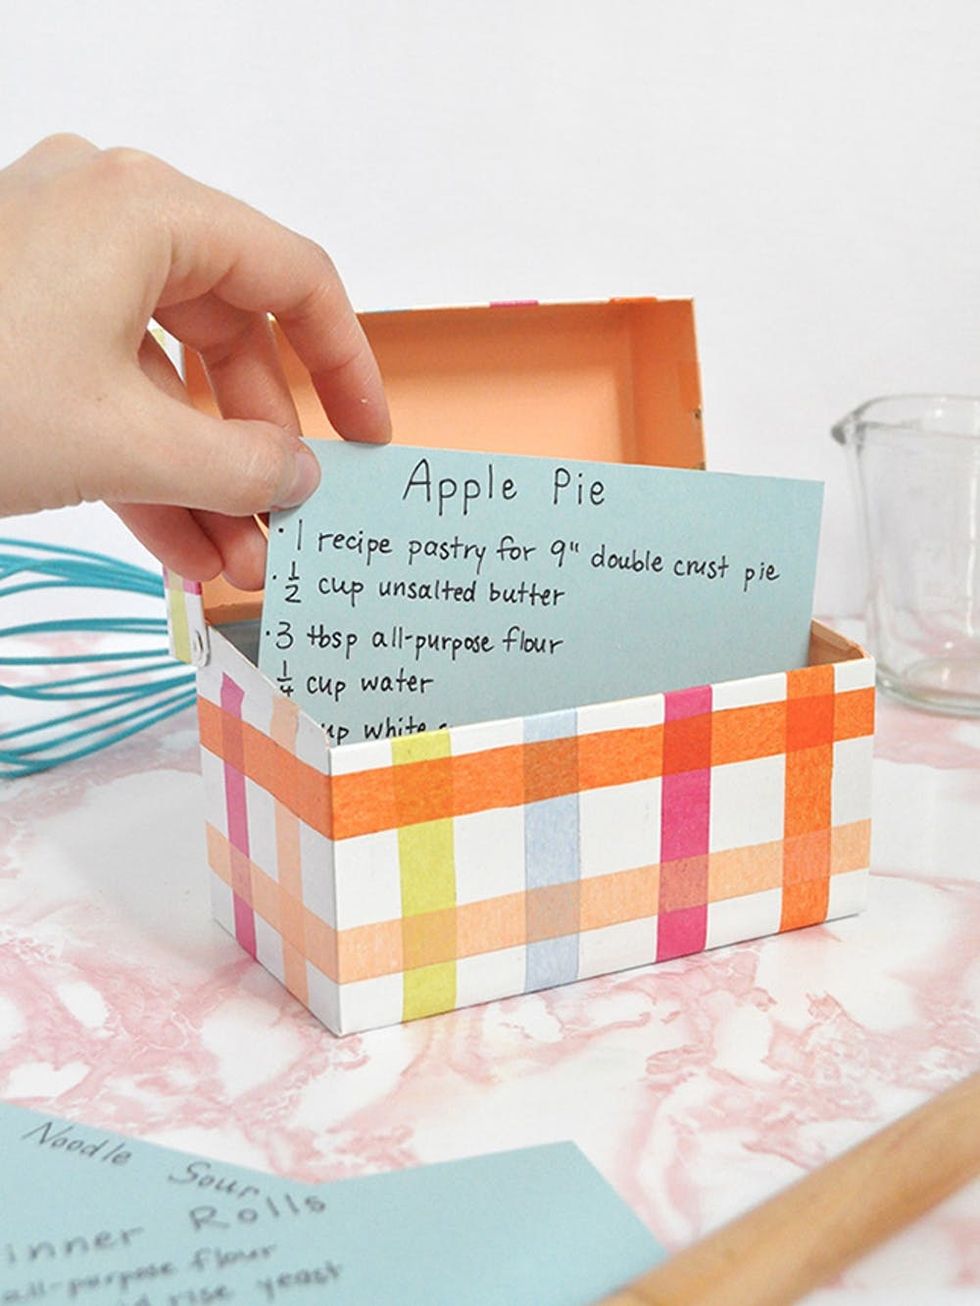 Apple Pie
· 1 recipe pastry for 9" double crust pie
· 1/2 cup unsalted butter
· 3 tbsp all-purpose flour
1/4 cup water
up white
Noodle Sour
inner Rolls
all-purpose flour
rise yeast